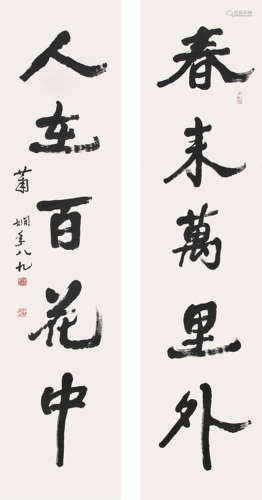 春來萬里外
人在百花中
蕭嫻年八九